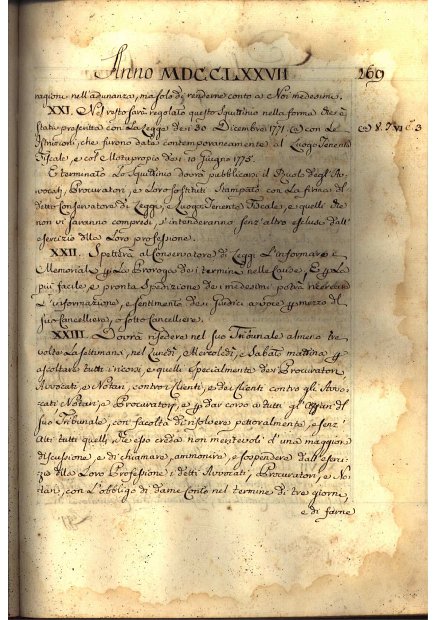 Anno MDCCLXXVII 260
ragione nell'adunanza, ma solo di renderne conto a Noi medesimi.
XXI. Nel resto sarà regolato questo Squittinio nella forma che è
stata prescritta con La Legge de i 30 Dicembre 1771. (a) con Le
Istruzioli, che furono data contemporaneamente al Luogo Tenente
Fiscale, e col Motuproprio de i 10 Giugno 1775.
(a) 8.
E terminato Lo Squittinio dovrà pubblicare il Ruolo degli Av
vocati, Procuratori, e Loro sostituti Stampato con La firma del
detto Conservatore di Leggi, e Luogo Tenente Fiscale, e quelli che
non vi saranno compresi, s'intenderanno senz'altro esclusi dall'
esercizio della Loro professione.
XXII. Spetterà al Conservatore di Leggi L'informare i
Memoriali p La Proroga de i termini nelle Cause, E p La
più facile e pronta Spedizione de i medesimi potrà ricercare
L'informazione, e sentimento de i Giudici a voce p mezzo del
suo Cancelliere, o sotto Cancelliere.
XXIII. Dovrà risedere nel suo Tribunale almeno tre
volte La settimana, nel Lunedì, Mercoledì, e Sabato mattina p
ascoltare tutti i ricorsi, e quelli specialmente dei Procuratori,
Avvocati, e Notari, contro i Clienti, e de i Clienti contro gli Avvo
cati Notari, e Procuratori, e p dar corso a tutti gl'Affari del
suo Tribunale, con facoltà di risolvere pettoralmente, e senz'
Atti tutti quelli, che esso creda non meritevoli d'una maggior
discussione, e di chiamare, ammonire, e sospendere dall'eserci
zio della Loro Professione i detti Avvocati, Procuratori, e No
tari, con L'obbligo di darne Conto nel termine di tre giorni,
e di farne